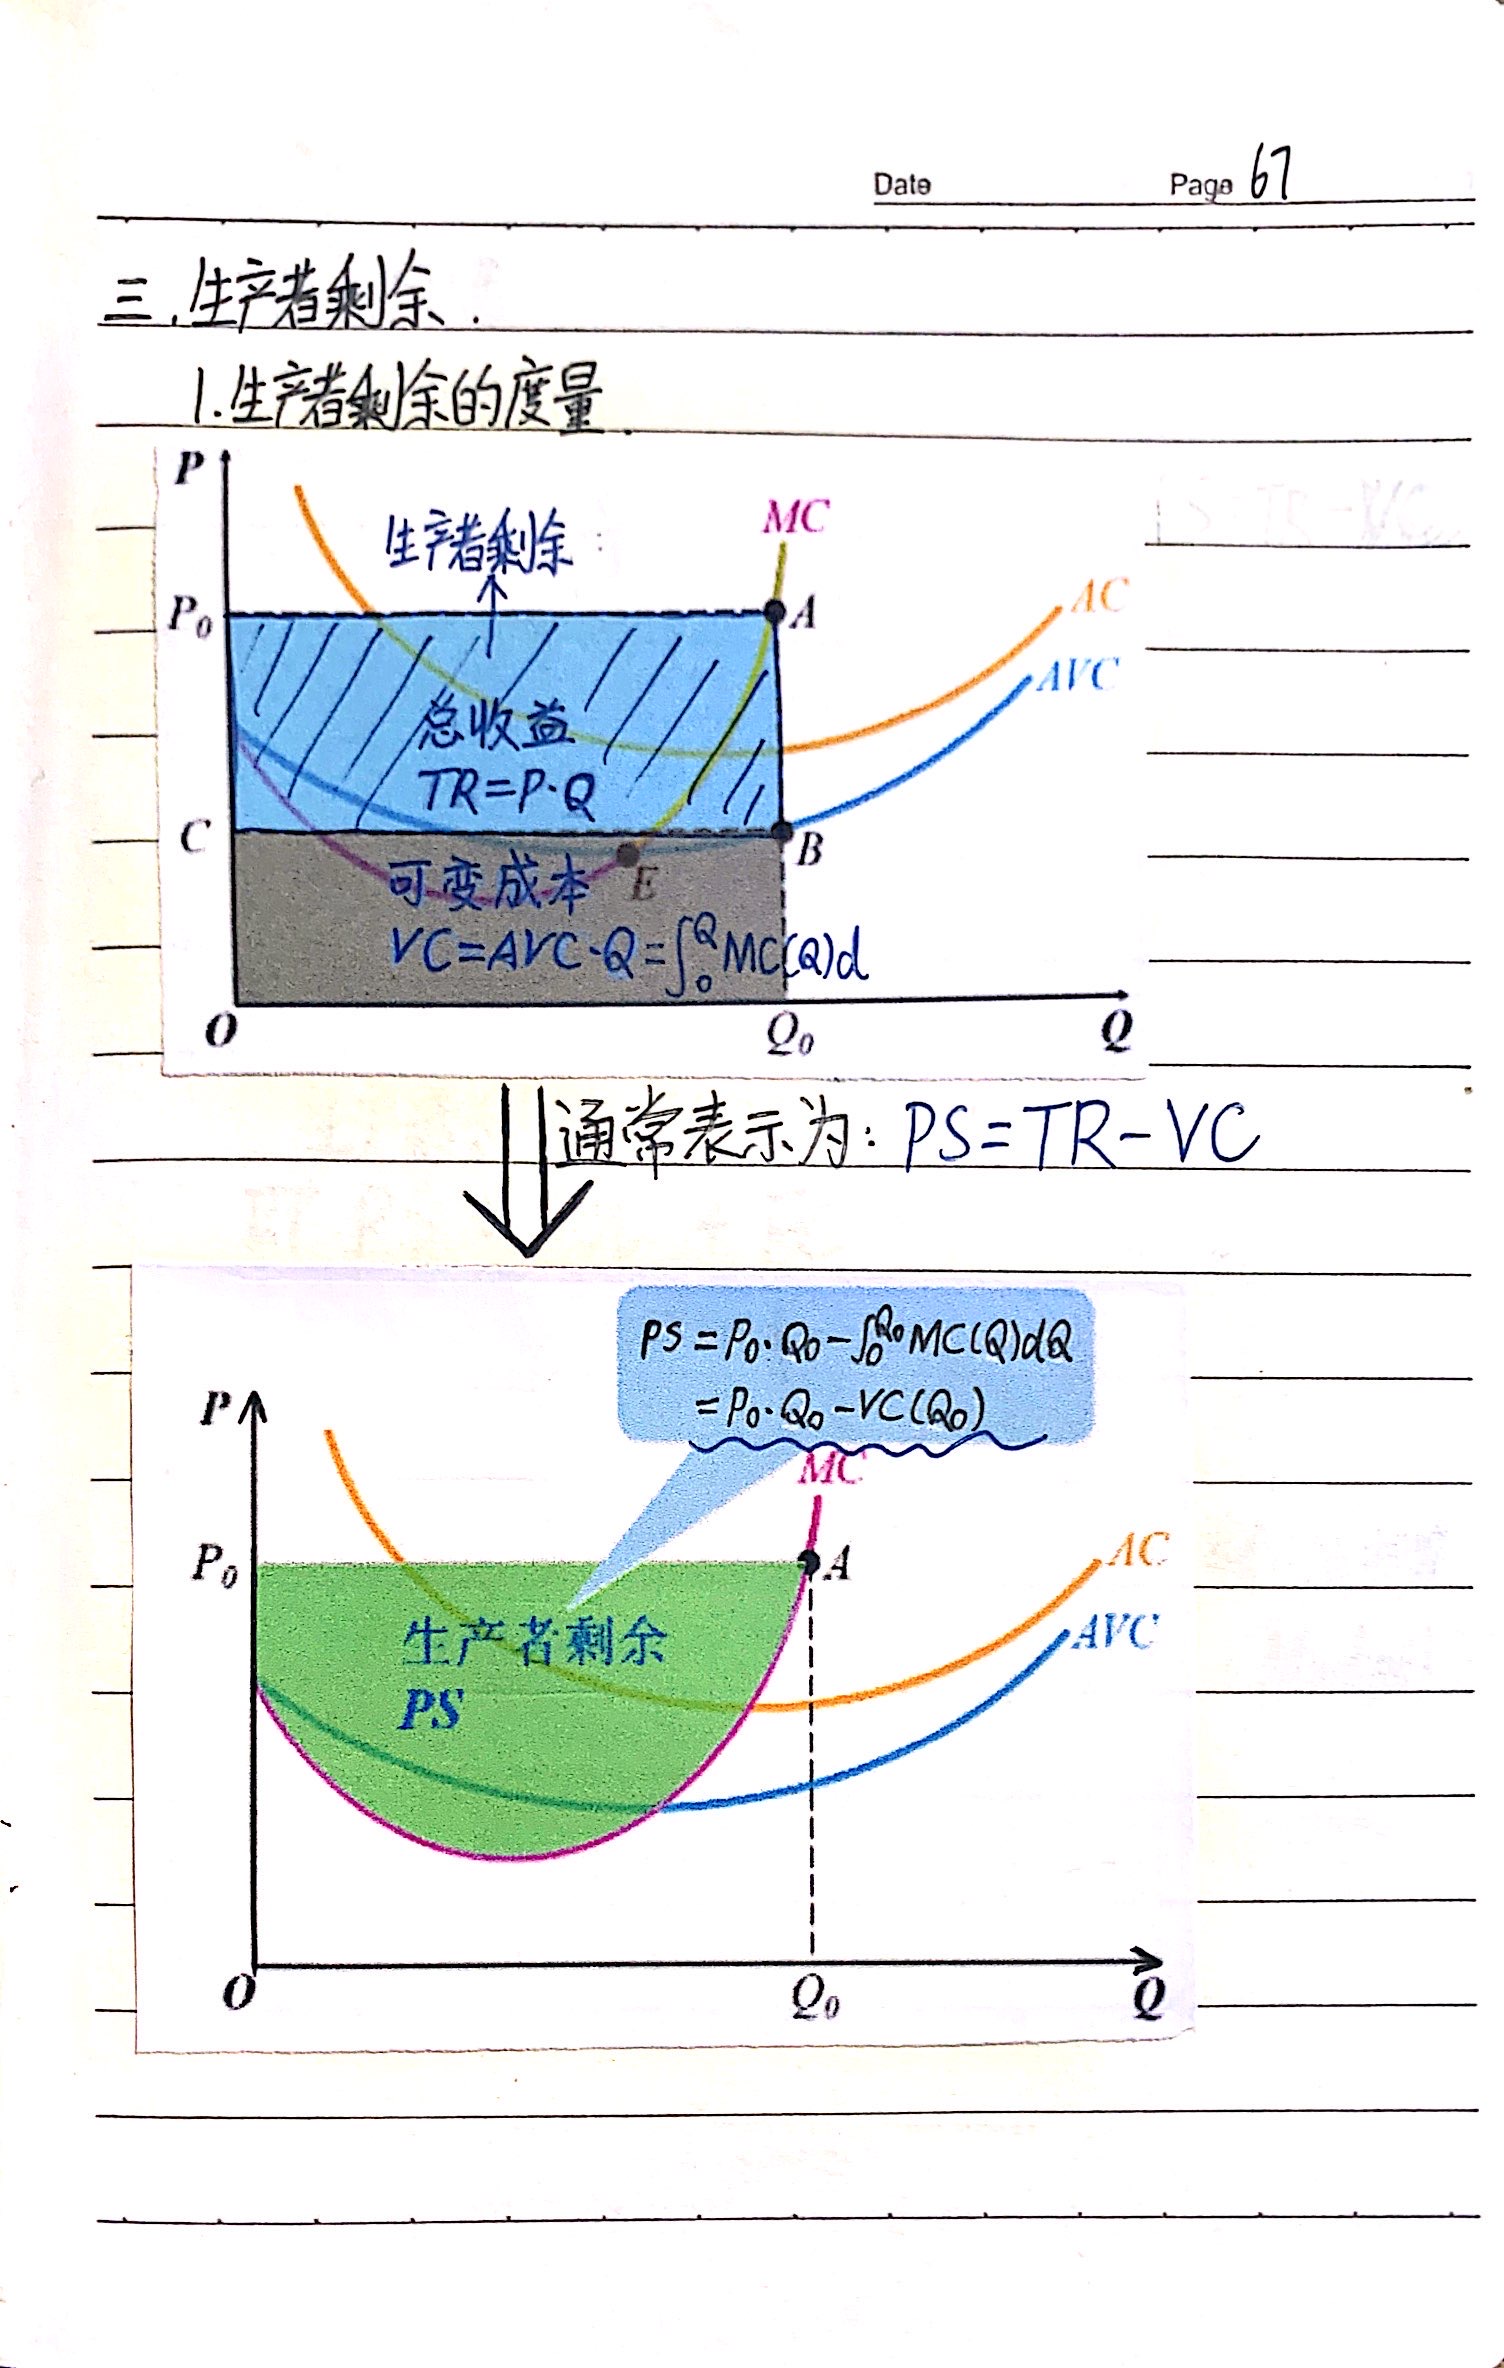 Date Page 67
三.生产者剩余.
1.生产者剩余的度量.
P
生产者剩余
MC
P₀ A AC
AVC
总收益
TR=P·Q
C B
可变成本 E
VC=AVC·Q=∫₀^Q MC(Q)d
O Q₀ Q
通常表示为: PS=TR-VC
PS=P₀·Q₀-∫₀^Q₀ MC(Q)dQ
=P₀·Q₀-VC(Q₀)
P
MC
P₀ A AC
生产者剩余 AVC
PS
O Q₀ Q